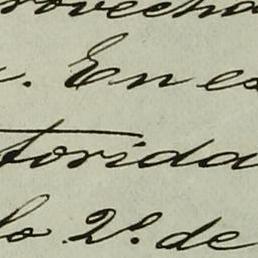 rovecha
. En es
torida
lo 2º. de